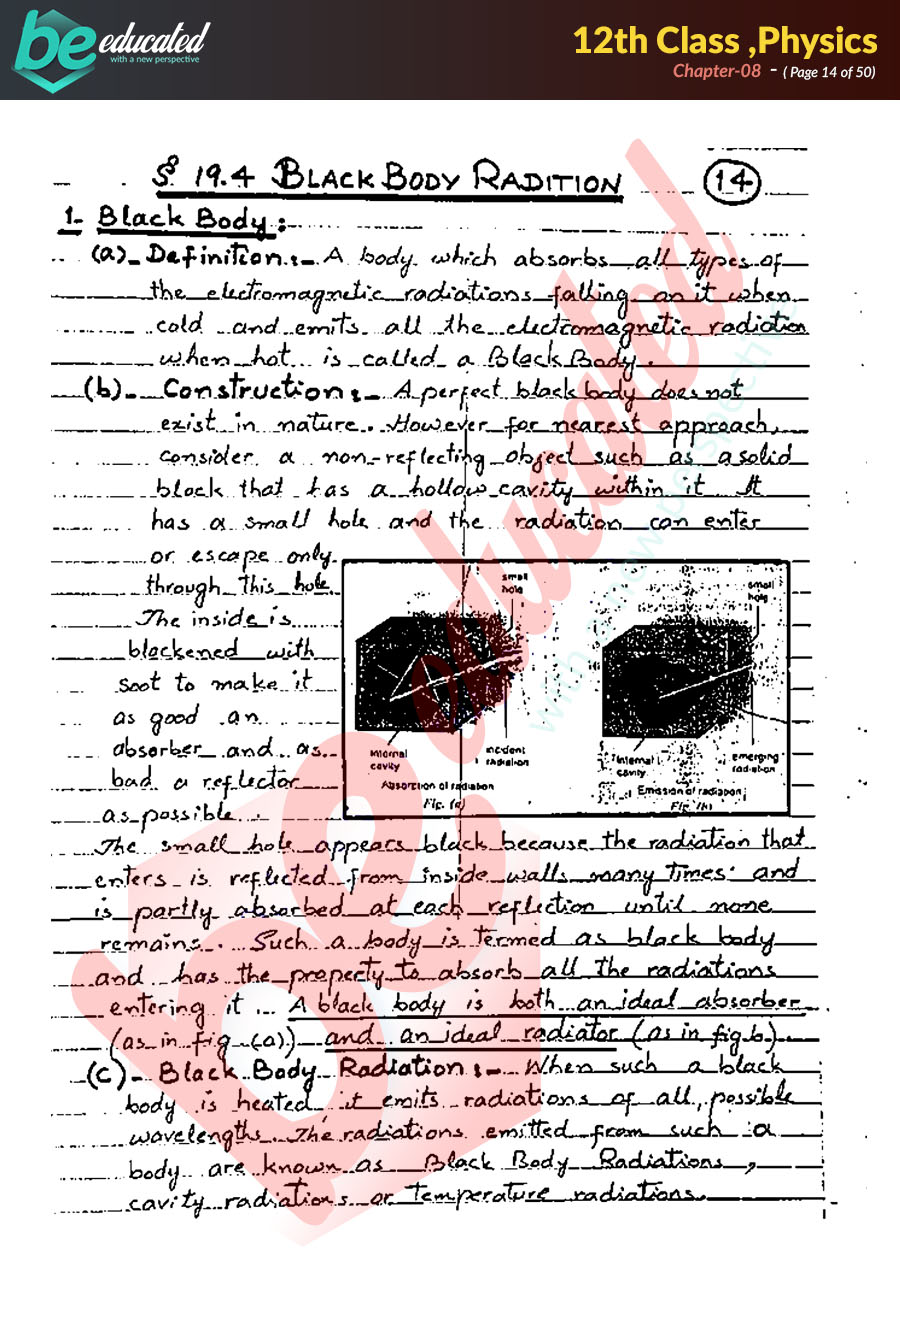 be educated
with a new perspective
12th Class ,Physics
Chapter-08 - ( Page 14 of 50)
§ 19.4 BLACK BODY RADITION
14
1- Black Body:
(a)- Definition:- A body which absorbs all types of
the electromagnetic radiations falling on it when
cold and emits all the electromagnetic radiation
when hot is called a Black Body.
(b)- Construction:- A perfect black body does not
exist in nature. However for nearest approach,
consider a non-reflecting object such as a solid
block that has a hollow cavity within it It
has a small hole and the radiation can enter
or escape only
through this hole
The inside is
blackened with
soot to make it
as good an
absorber and as
bad a reflector
as possible.
small
hole
internal
cavity
incident
radiation
Absorption of radiation
Fig. (a)
small
hole
internal
cavity
emerging
radiation
Emission of radiation
Fig. (b)
The small hole appears black because the radiation that
enters is reflected from inside walls many times and
is partly absorbed at each reflection until none
remains. Such a body is termed as black body
and has the property to absorb all the radiations
entering it. A black body is both an ideal absorber
(as in fig (a)) and an ideal radiator (as in fig b)
(c)- Black Body Radiation:- When such a black
body is heated, it emits radiations of all possible
wavelengths. The radiations emitted from such a
body are known as Black Body Radiations,
cavity radiations or temperature radiations.
be educated
with a new perspective